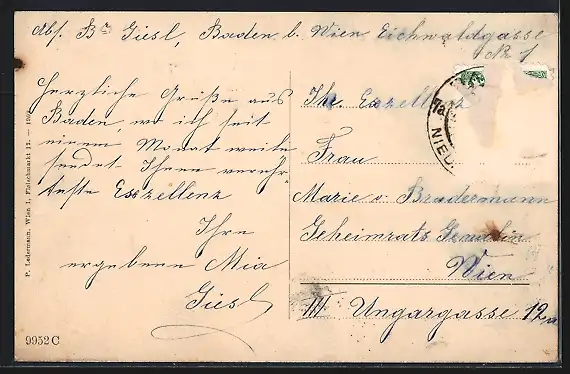 Abs. Bn Giesl, Baden b. Wien Eichwaldgasse
Nr 1
Herzliche Grüße aus
Baden, wo ich seit
einem Monat weile
sendet Ihnen verehr
teste Exzellenz
Ihre
ergebene Mia
Giesl
Ihr. Exzellenz
Frau
Marie v. Bradermann
Geheimrats Gemahlin
Wien
III Ungargasse 12a
NIED
P. Ledermann, Wien I., Fleischmarkt 12. — 1909
9952 C